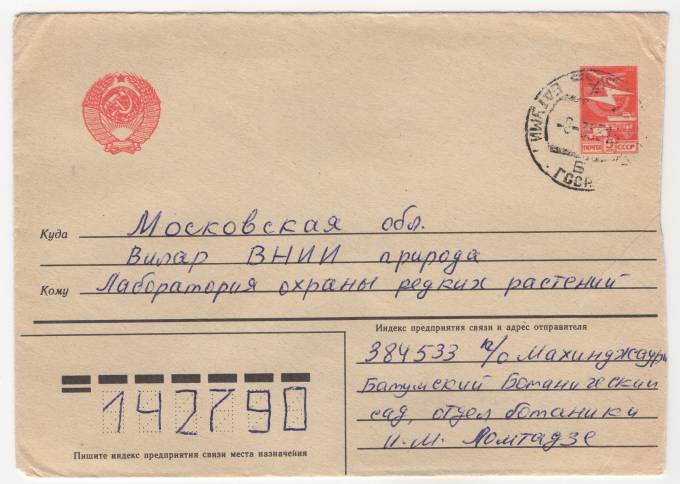 БАТУМИ
ГССР
ПОЧТА 5 СССР
Куда Московская обл.
Вилар ВНИИ природа
Кому Лаборатория охраны редких растений
Индекс предприятия связи и адрес отправителя
384533 п/о Махинджаури
Батумский Ботанический
сад, отдел ботаники
Н.М. Ломтадзе
142790
Пишите индекс предприятия связи места назначения